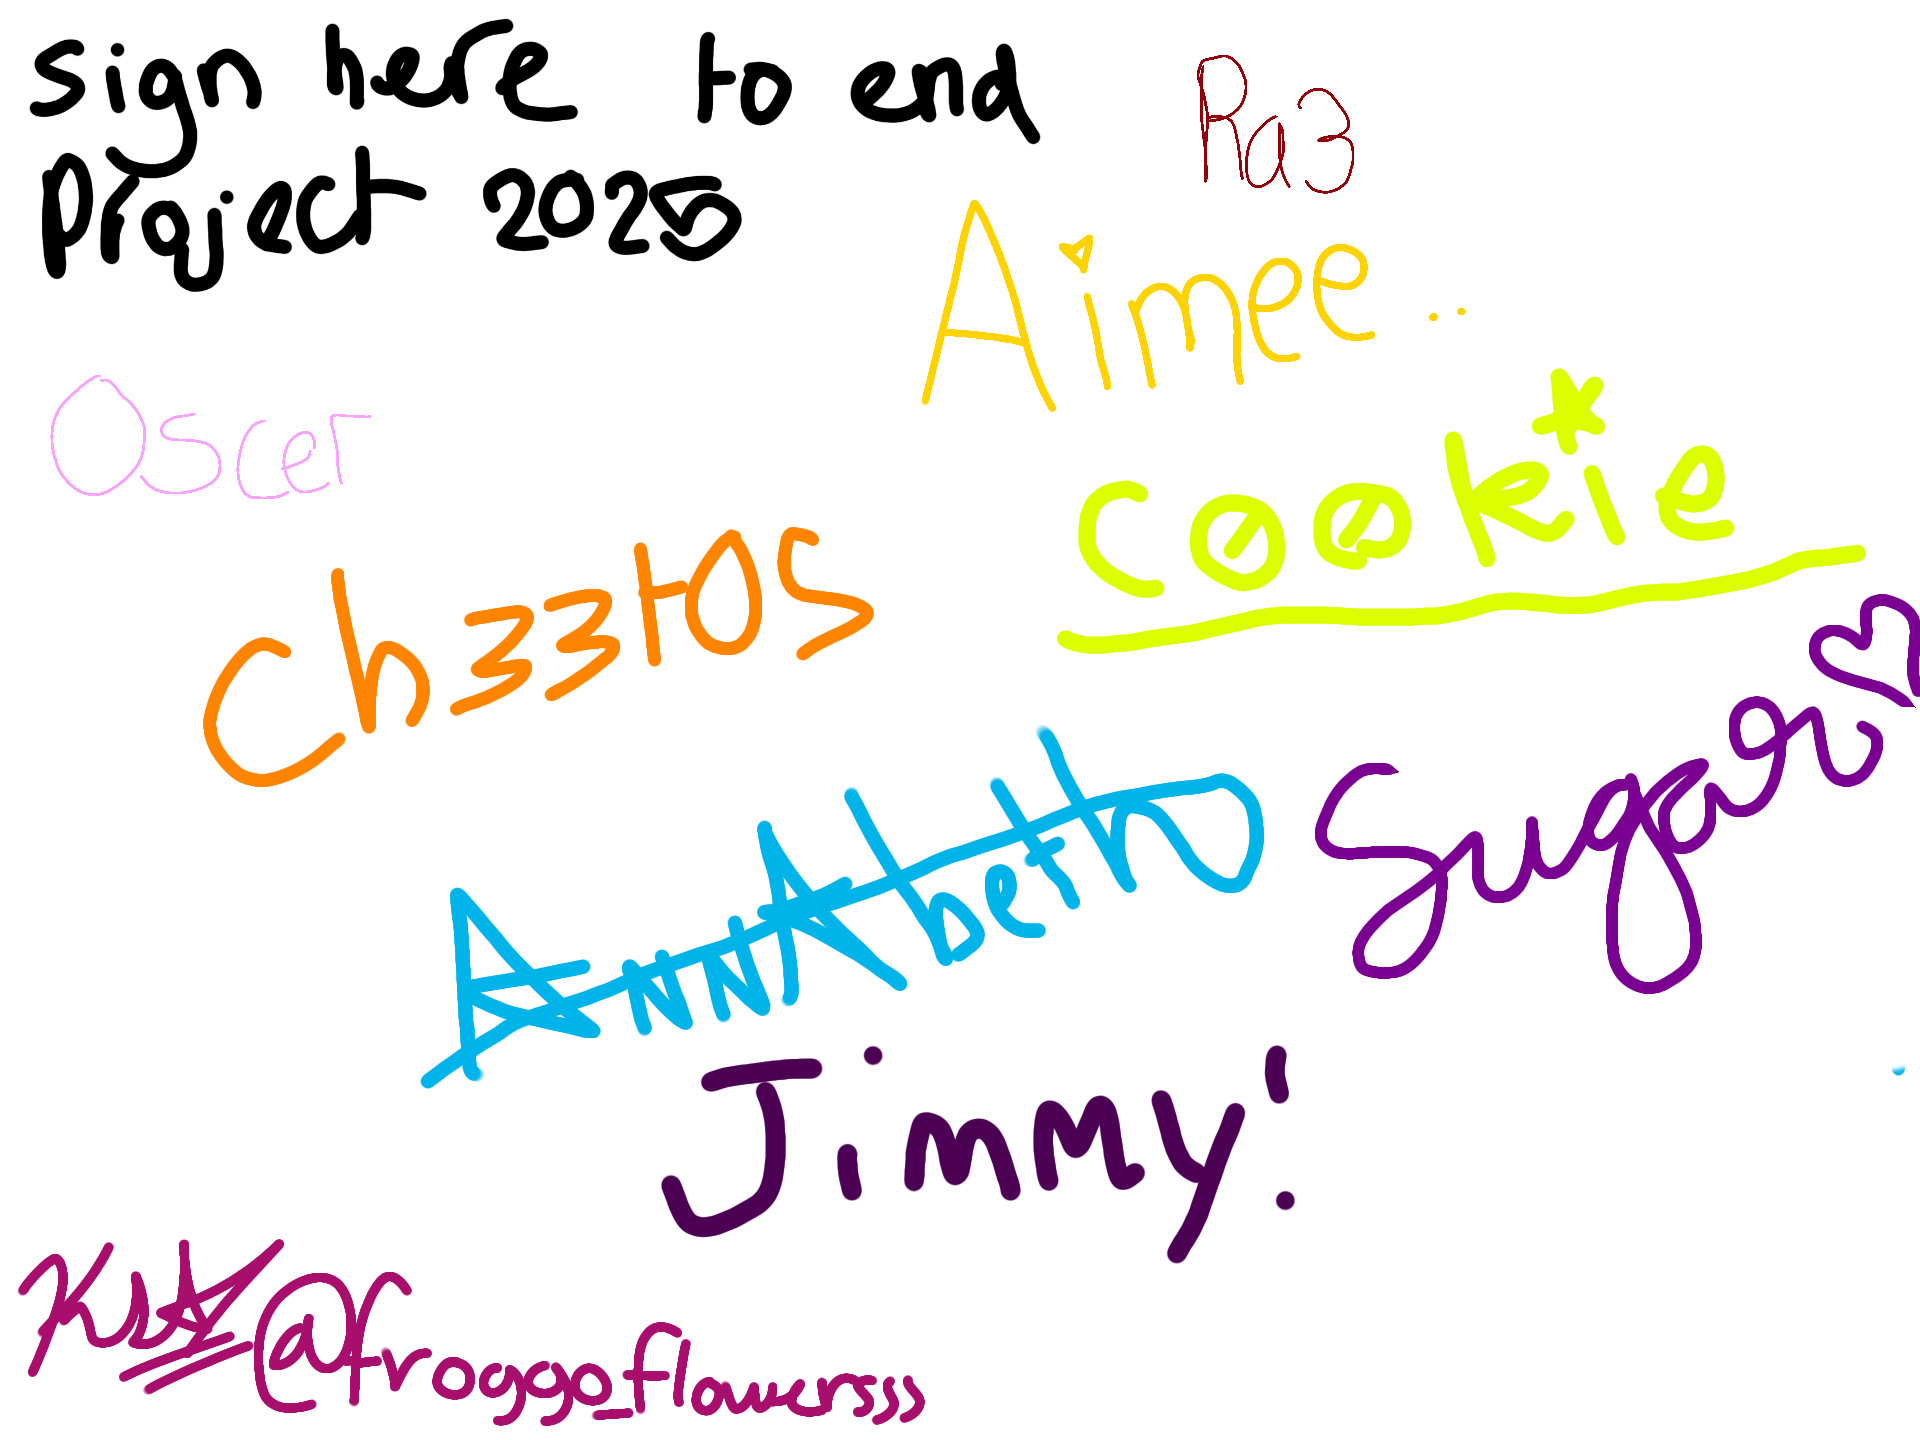 sign here to end
Project 2025
Ra3
Aimee..
Oscer
cookie
Ch33tOS
Sugar
AnnAbeth
Jimmy!
@froggo_flowersss